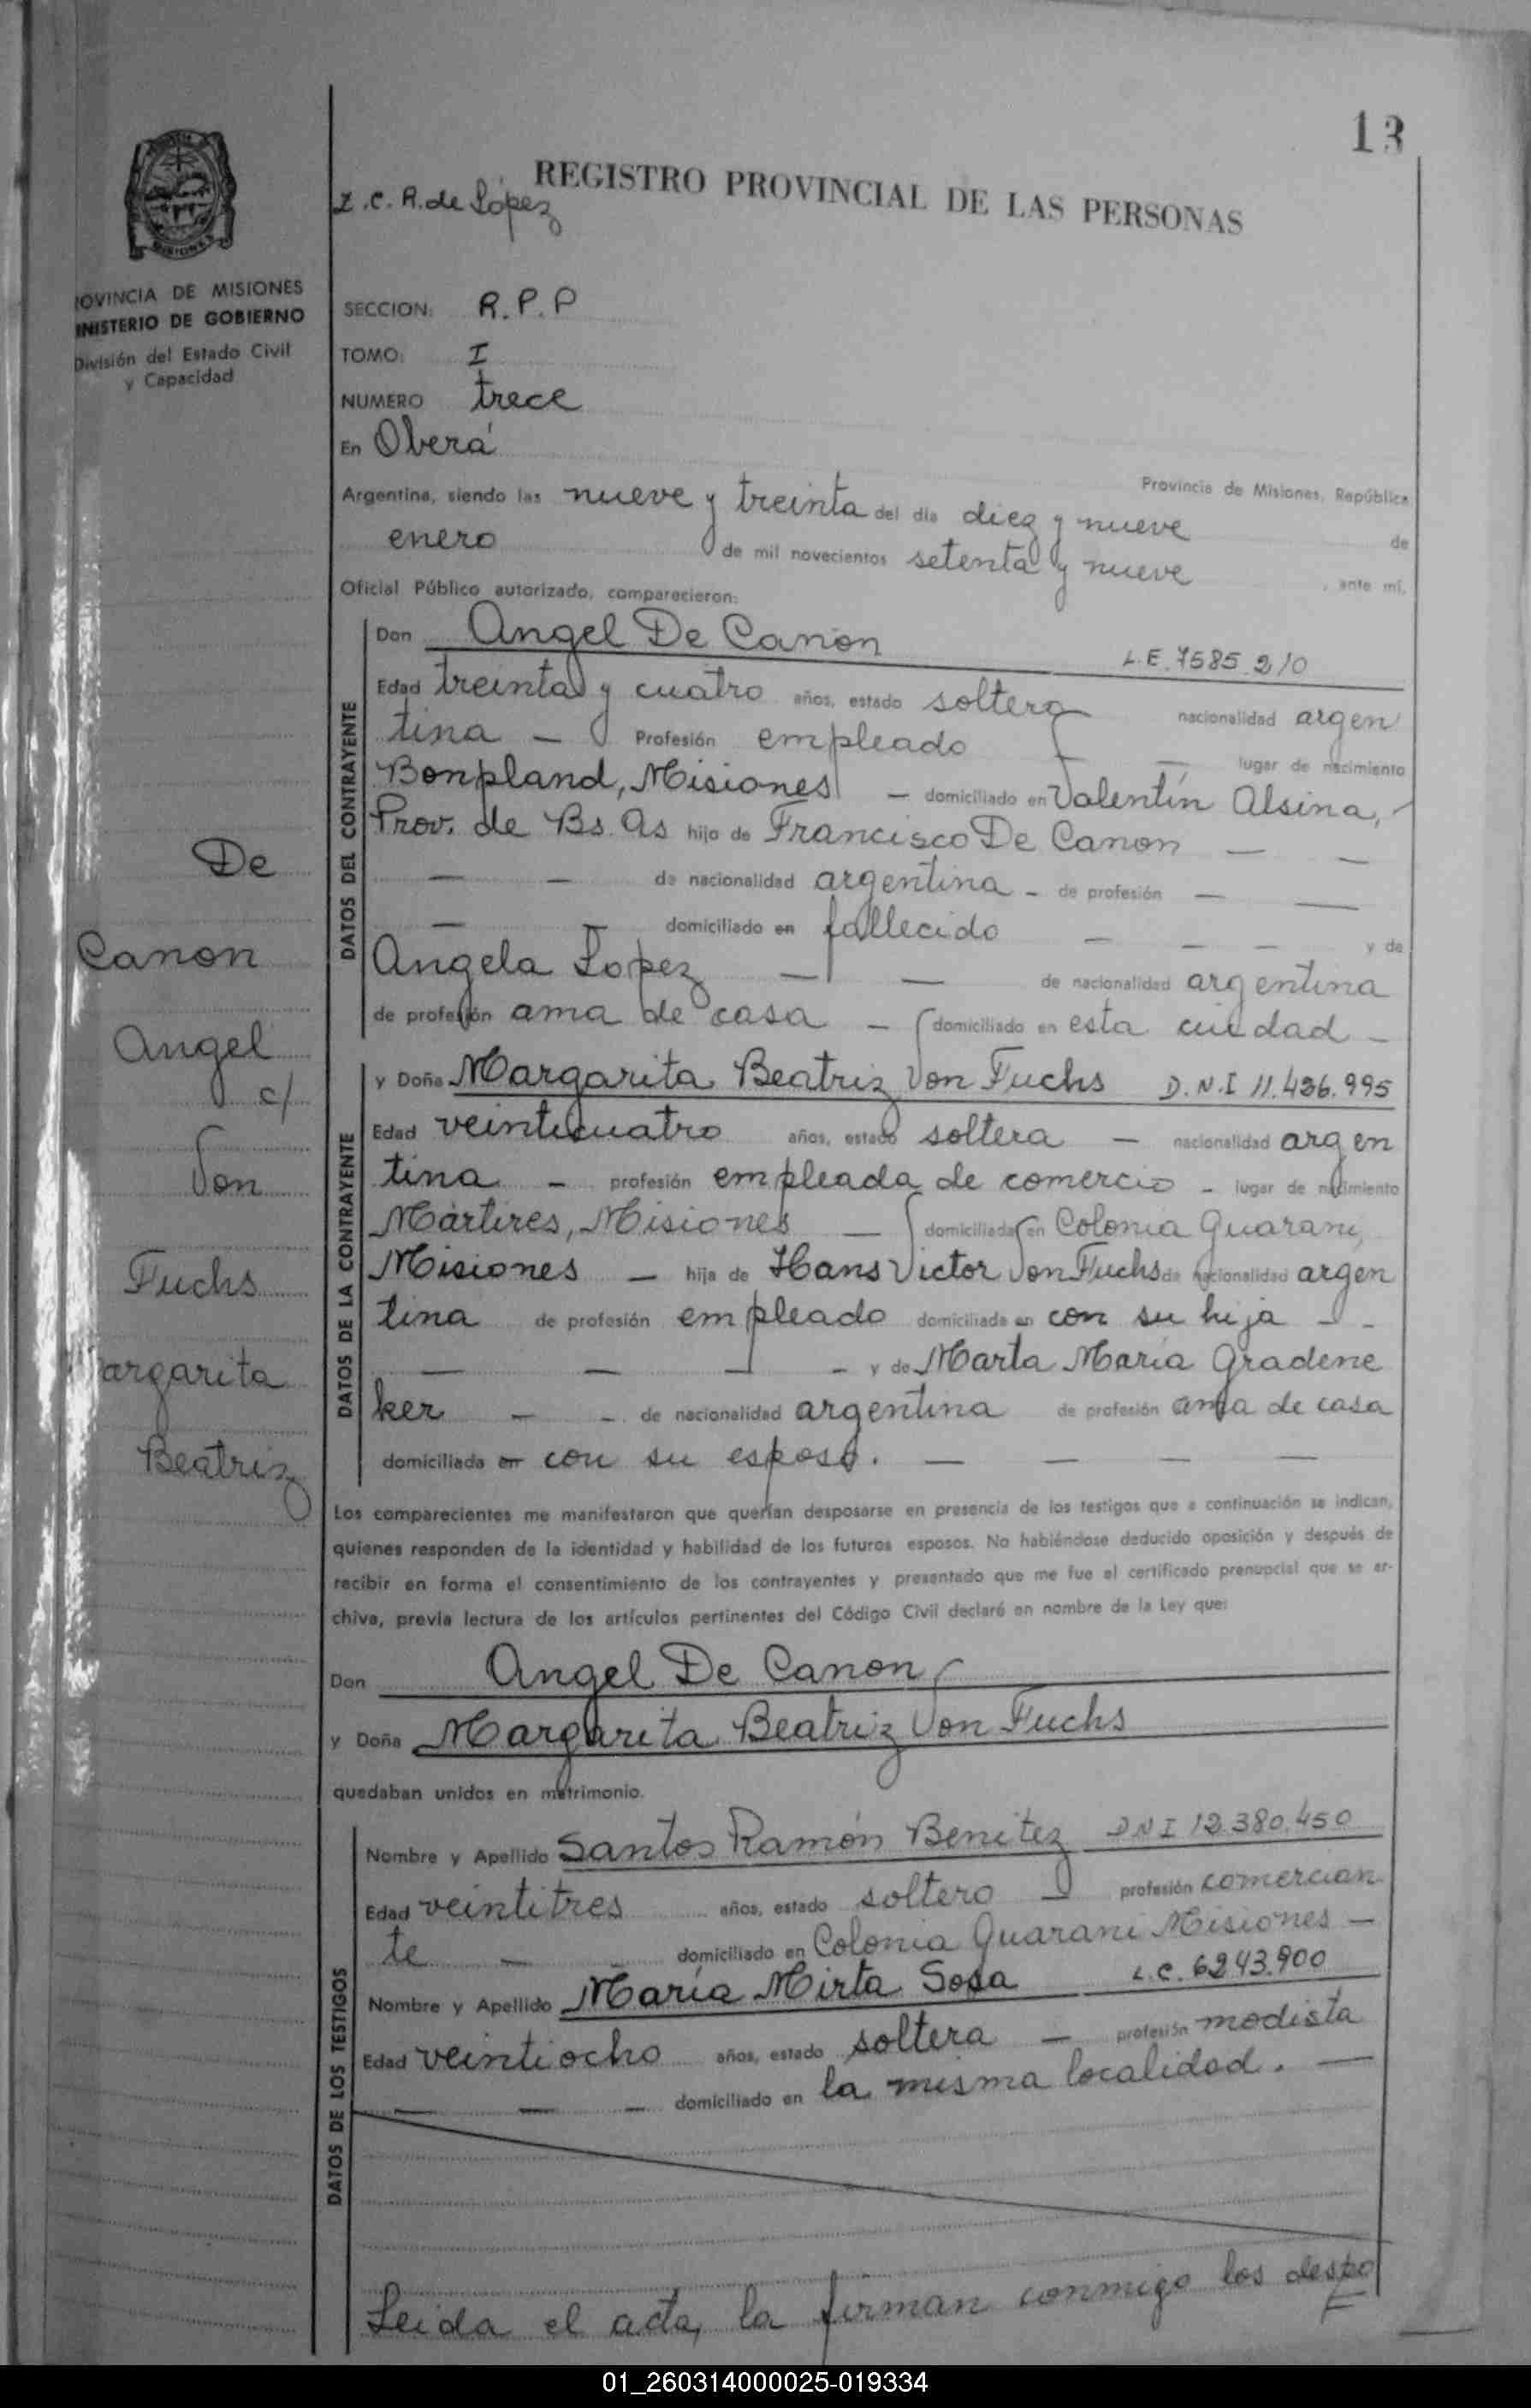 13
REGISTRO PROVINCIAL DE LAS PERSONAS
Z.C.R. de López
MISIONES
OVINCIA DE MISIONES
INISTERIO DE GOBIERNO
División del Estado Civil
y Capacidad
SECCION: R.P.P
TOMO: I
NUMERO trece
En Oberá
Provincia de Misiones, República
Argentina, siendo las nueve y treinta del día diez y nueve de
enero de mil novecientos setenta y nueve, ante mí,
Oficial Público autorizado, comparecieron:
DATOS DEL CONTRAYENTE
Don Angel De Canon L.E. 7585.210
Edad treinta y cuatro años, estado soltero nacionalidad argen
tina — Profesión empleado — lugar de nacimiento
Bonpland, Misiones — domiciliado en Valentín Alsina,
Prov. de Bs. As hijo de Francisco De Canon — —
— — de nacionalidad argentina - de profesión — —
— domiciliado en fallecido — — — y de
Angela Lopez — — de nacionalidad argentina
de profesión ama de casa — domiciliado en esta ciudad -
DATOS DE LA CONTRAYENTE
y Doña Margarita Beatriz Von Fuchs D.N.I 11.436.995
Edad veinticuatro años, estado soltera — nacionalidad argen
tina - profesión empleada de comercio - lugar de nacimiento
Mártires, Misiones — domiciliada en Colonia Guarani,
Misiones — hija de Hans Victor Von Fuchs de nacionalidad argen
tina de profesión empleado domiciliada en con su hija - -
— — — - y de Marta María Gradene
ker - - de nacionalidad argentina de profesión ama de casa
domiciliada en con su esposo. — — — —
De
Canon
Angel
c/
Von
Fuchs
argarita
Beatriz
Los comparecientes me manifestaron que querían desposarse en presencia de los testigos que a continuación se indican,
quienes responden de la identidad y habilidad de los futuros esposos. No habiéndose deducido oposición y después de
recibir en forma el consentimiento de los contrayentes y presentado que me fue el certificado prenupcial que se ar-
chiva, previa lectura de los artículos pertinentes del Código Civil declaré en nombre de la Ley que:
Don Angel De Canon
y Doña Margarita Beatriz Von Fuchs
quedaban unidos en matrimonio.
DATOS DE LOS TESTIGOS
Nombre y Apellido Santos Ramón Benitez DNI 12.380.450
Edad veintitres años, estado soltero — profesión comercian
te — domiciliado en Colonia Guarani Misiones —
Nombre y Apellido María Mirta Sosa L.C. 6243.900
Edad veintiocho años, estado soltera — profesión modista
— — — domiciliado en la misma localidad. —
Leida el acta, la firman conmigo los despo
01_260314000025-019334